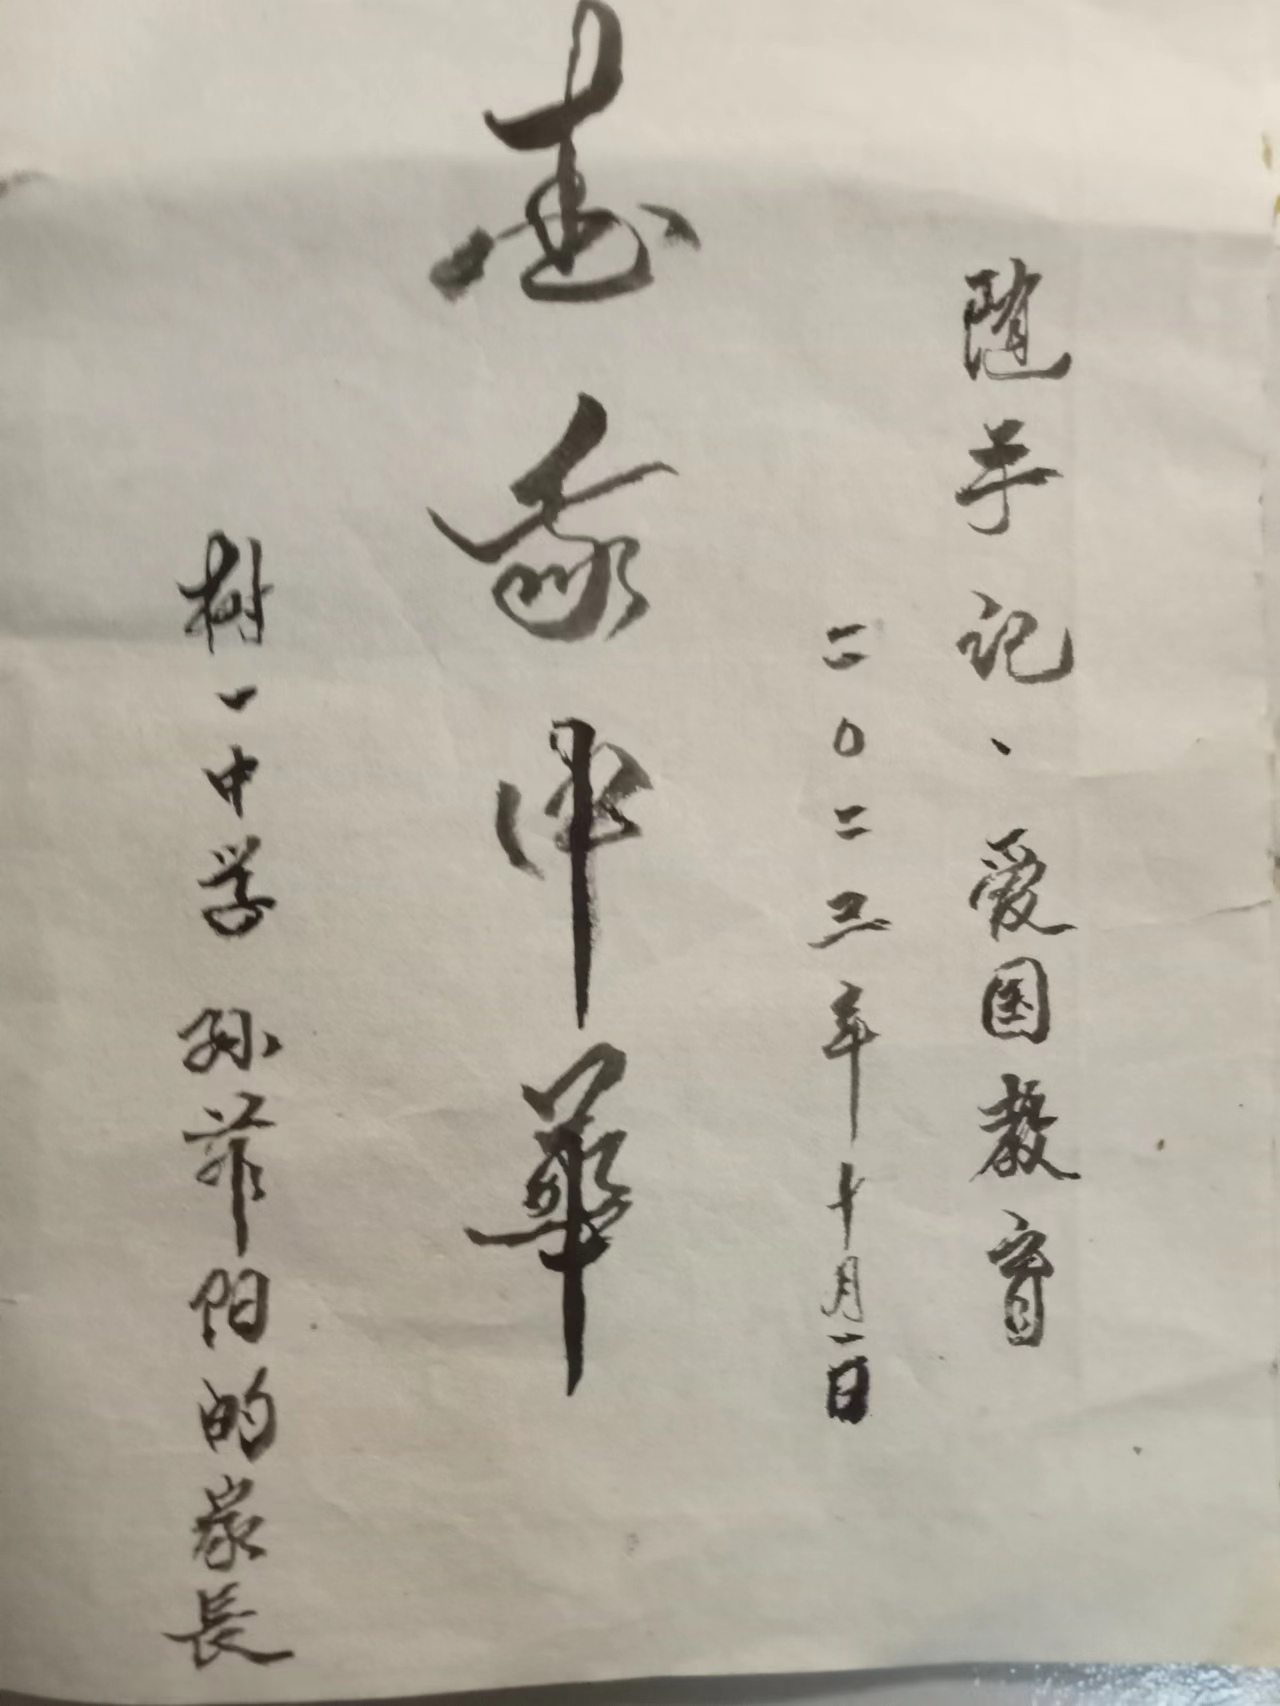 随手记、爱国教育
二〇二三年十月一日
志在中华
树一中学 孙菲阳的家長